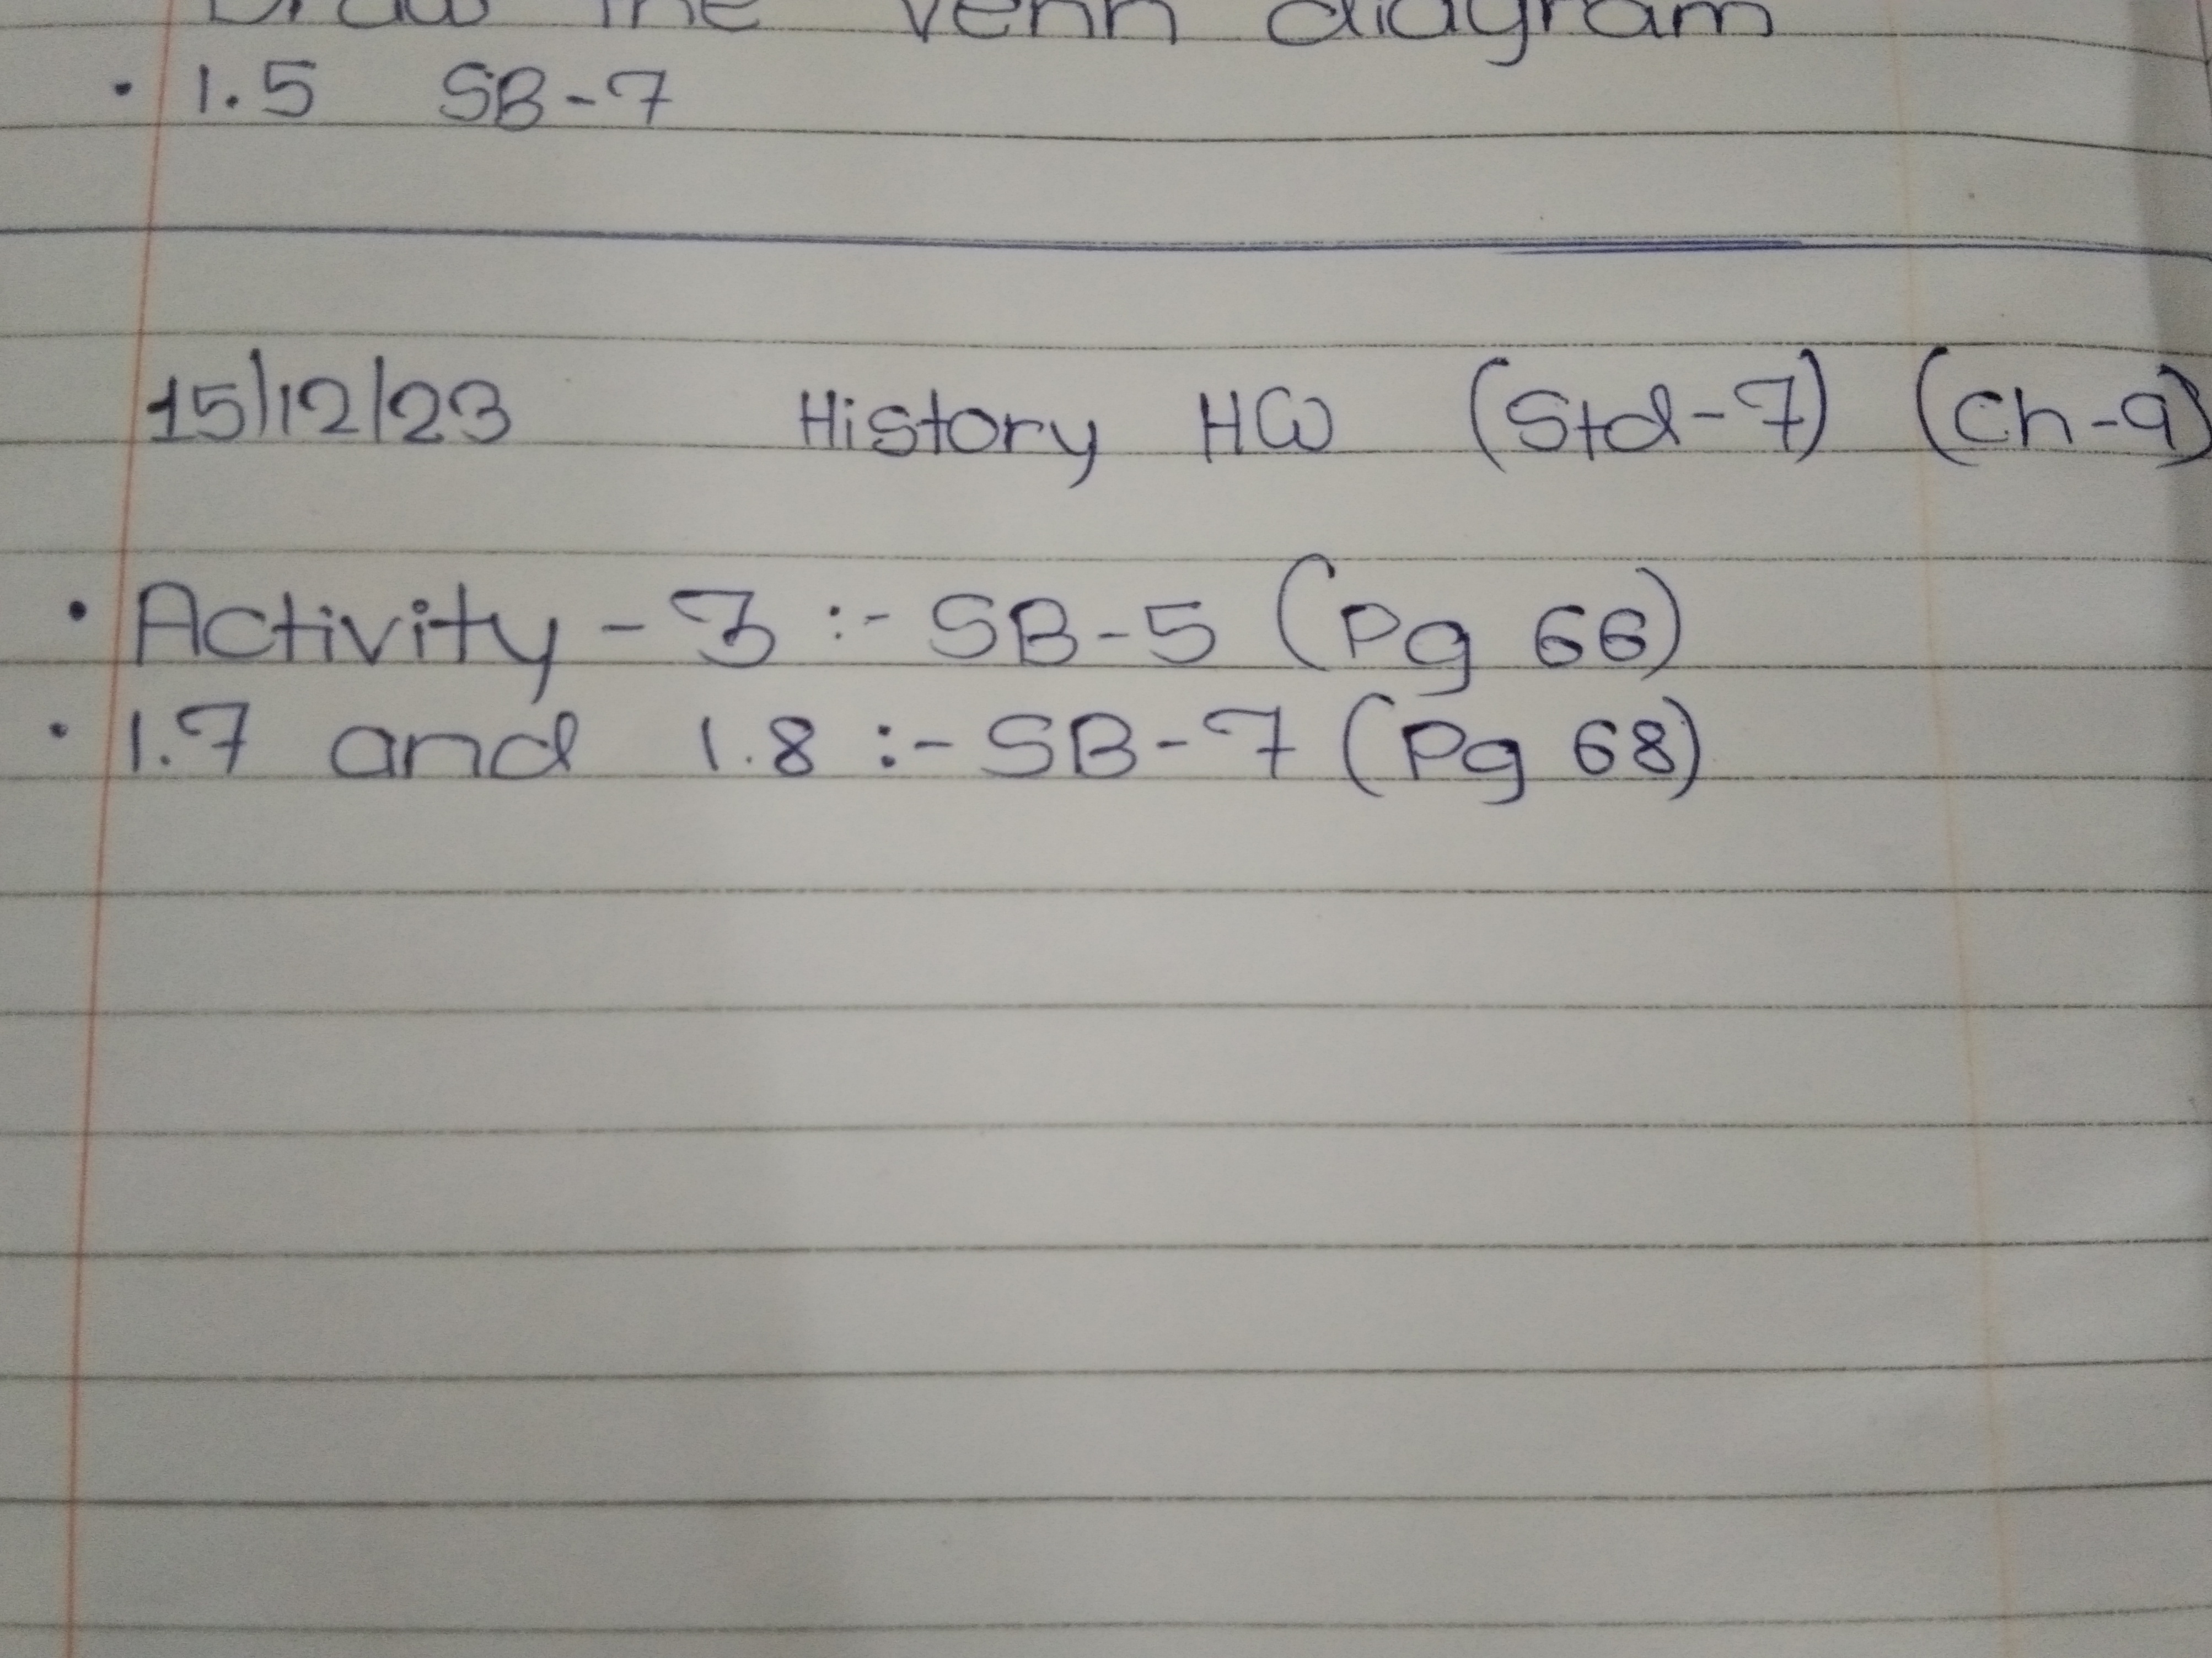 Draw the Venn diagram
• 1.5 SB-7
15/12/23 History HW (Std-7) (Ch-9)
• Activity - 3 :- SB-5 (Pg 66)
• 1.7 and 1.8 :- SB-7 (Pg 68)